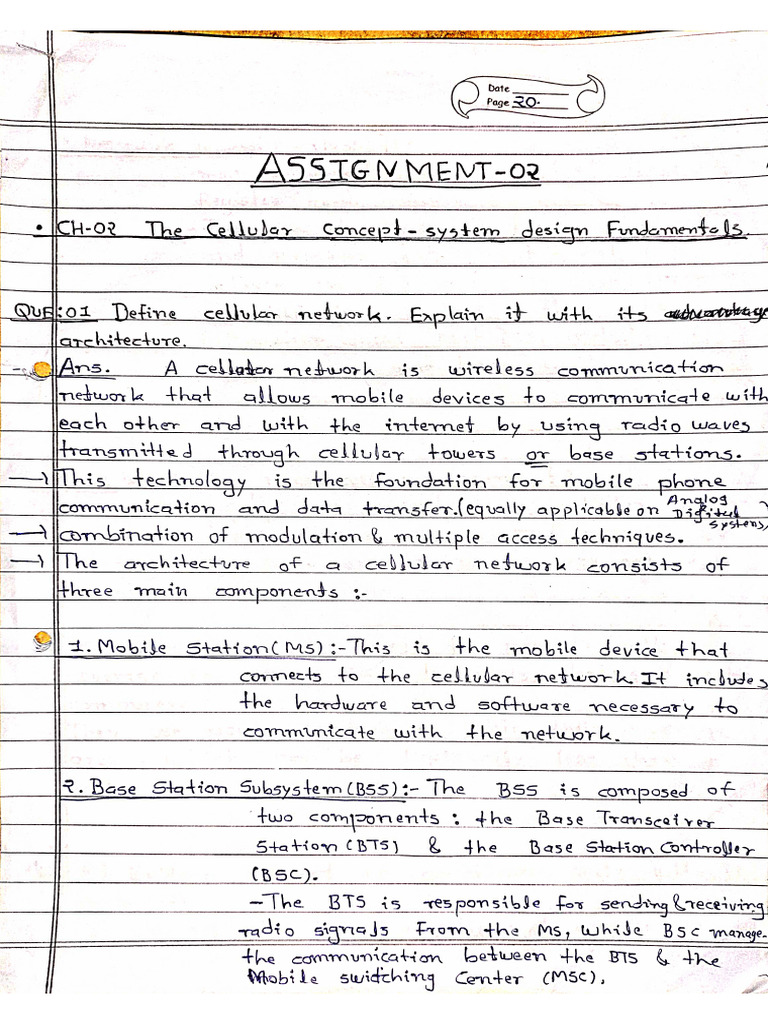 Date
Page 20.
ASSIGNMENT-02
• CH-02 The Cellular Concept-system design Fundamentals.
QUE:01 Define cellular network. Explain it with its
architecture.
Ans. A cellular network is wireless communication
network that allows mobile devices to communicate with
each other and with the internet by using radio waves
transmitted through cellular towers or base stations.
→ This technology is the foundation for mobile phone
communication and data transfer. (equally applicable on Analog Digital systems)
→ combination of modulation & multiple access techniques.
→ The architecture of a cellular network consists of
three main components :-
1. Mobile Station (MS) :- This is the mobile device that
connects to the cellular network. It includes
the hardware and software necessary to
communicate with the network.
2. Base Station Subsystem (BSS) :- The BSS is composed of
two components : the Base Transceiver
Station (BTS) & the Base Station Controller
(BSC).
- The BTS is responsible for sending & receiving
radio signals from the MS, while BSC manage.
the communication between the BTS & the
Mobile switching Center (MSC).